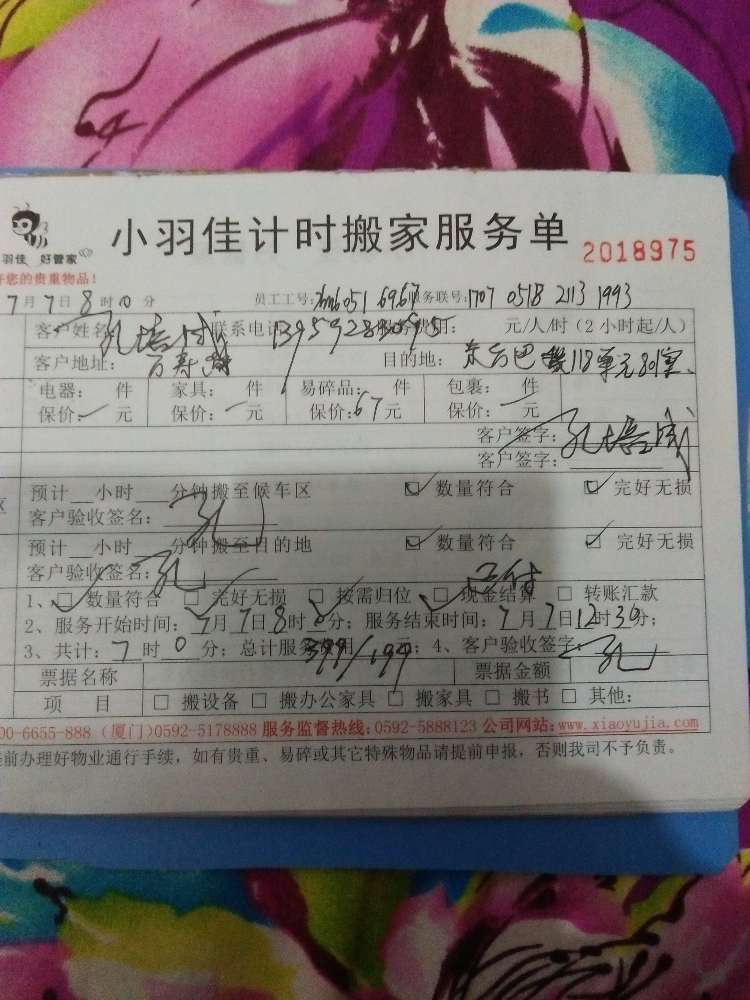 小羽佳计时搬家服务单 2018975
羽佳 好管家
好您的贵重物品!
7月7日8时0分 员工工号: 服务联号:1707 0518 2113 1993
客户姓名 孔培成 联系电话 费用: 元/人/时(2小时起/人)
客户地址: 万寿 目的地: 东方巴黎118单元801室
电器: 件 家具: 件 易碎品: 件 包裹: 件
保价: 元 保价: 元 保价:67元 保价: 元
客户签字: 孔培成
客户签字:
预计 小时 分钟搬至候车区 ☑ 数量符合 ☑ 完好无损
客户验收签名: 孔
预计 小时 分钟搬至目的地 ☑ 数量符合 ☑ 完好无损
客户验收签名: 孔
1、☑ 数量符合 ☑ 完好无损 ☐ 按需归位 ☑ 现金结算 ☐ 转账汇款
2、服务开始时间:7月7日8时 分;服务结束时间:7月7日12时30分;
3、共计:7时0分;总计服务费用 399/199 元;4、客户验收签字: 孔
票据名称 票据金额
项 目 ☐ 搬设备 ☐ 搬办公家具 ☐ 搬家具 ☐ 搬书 ☐ 其他:
00-6655-888 (厦门)0592-5178888 服务监督热线:0592-5888123 公司网站:www.xiaoyujia.com
前办理好物业通行手续,如有贵重、易碎或其它特殊物品请提前申报,否则我司不予负责。